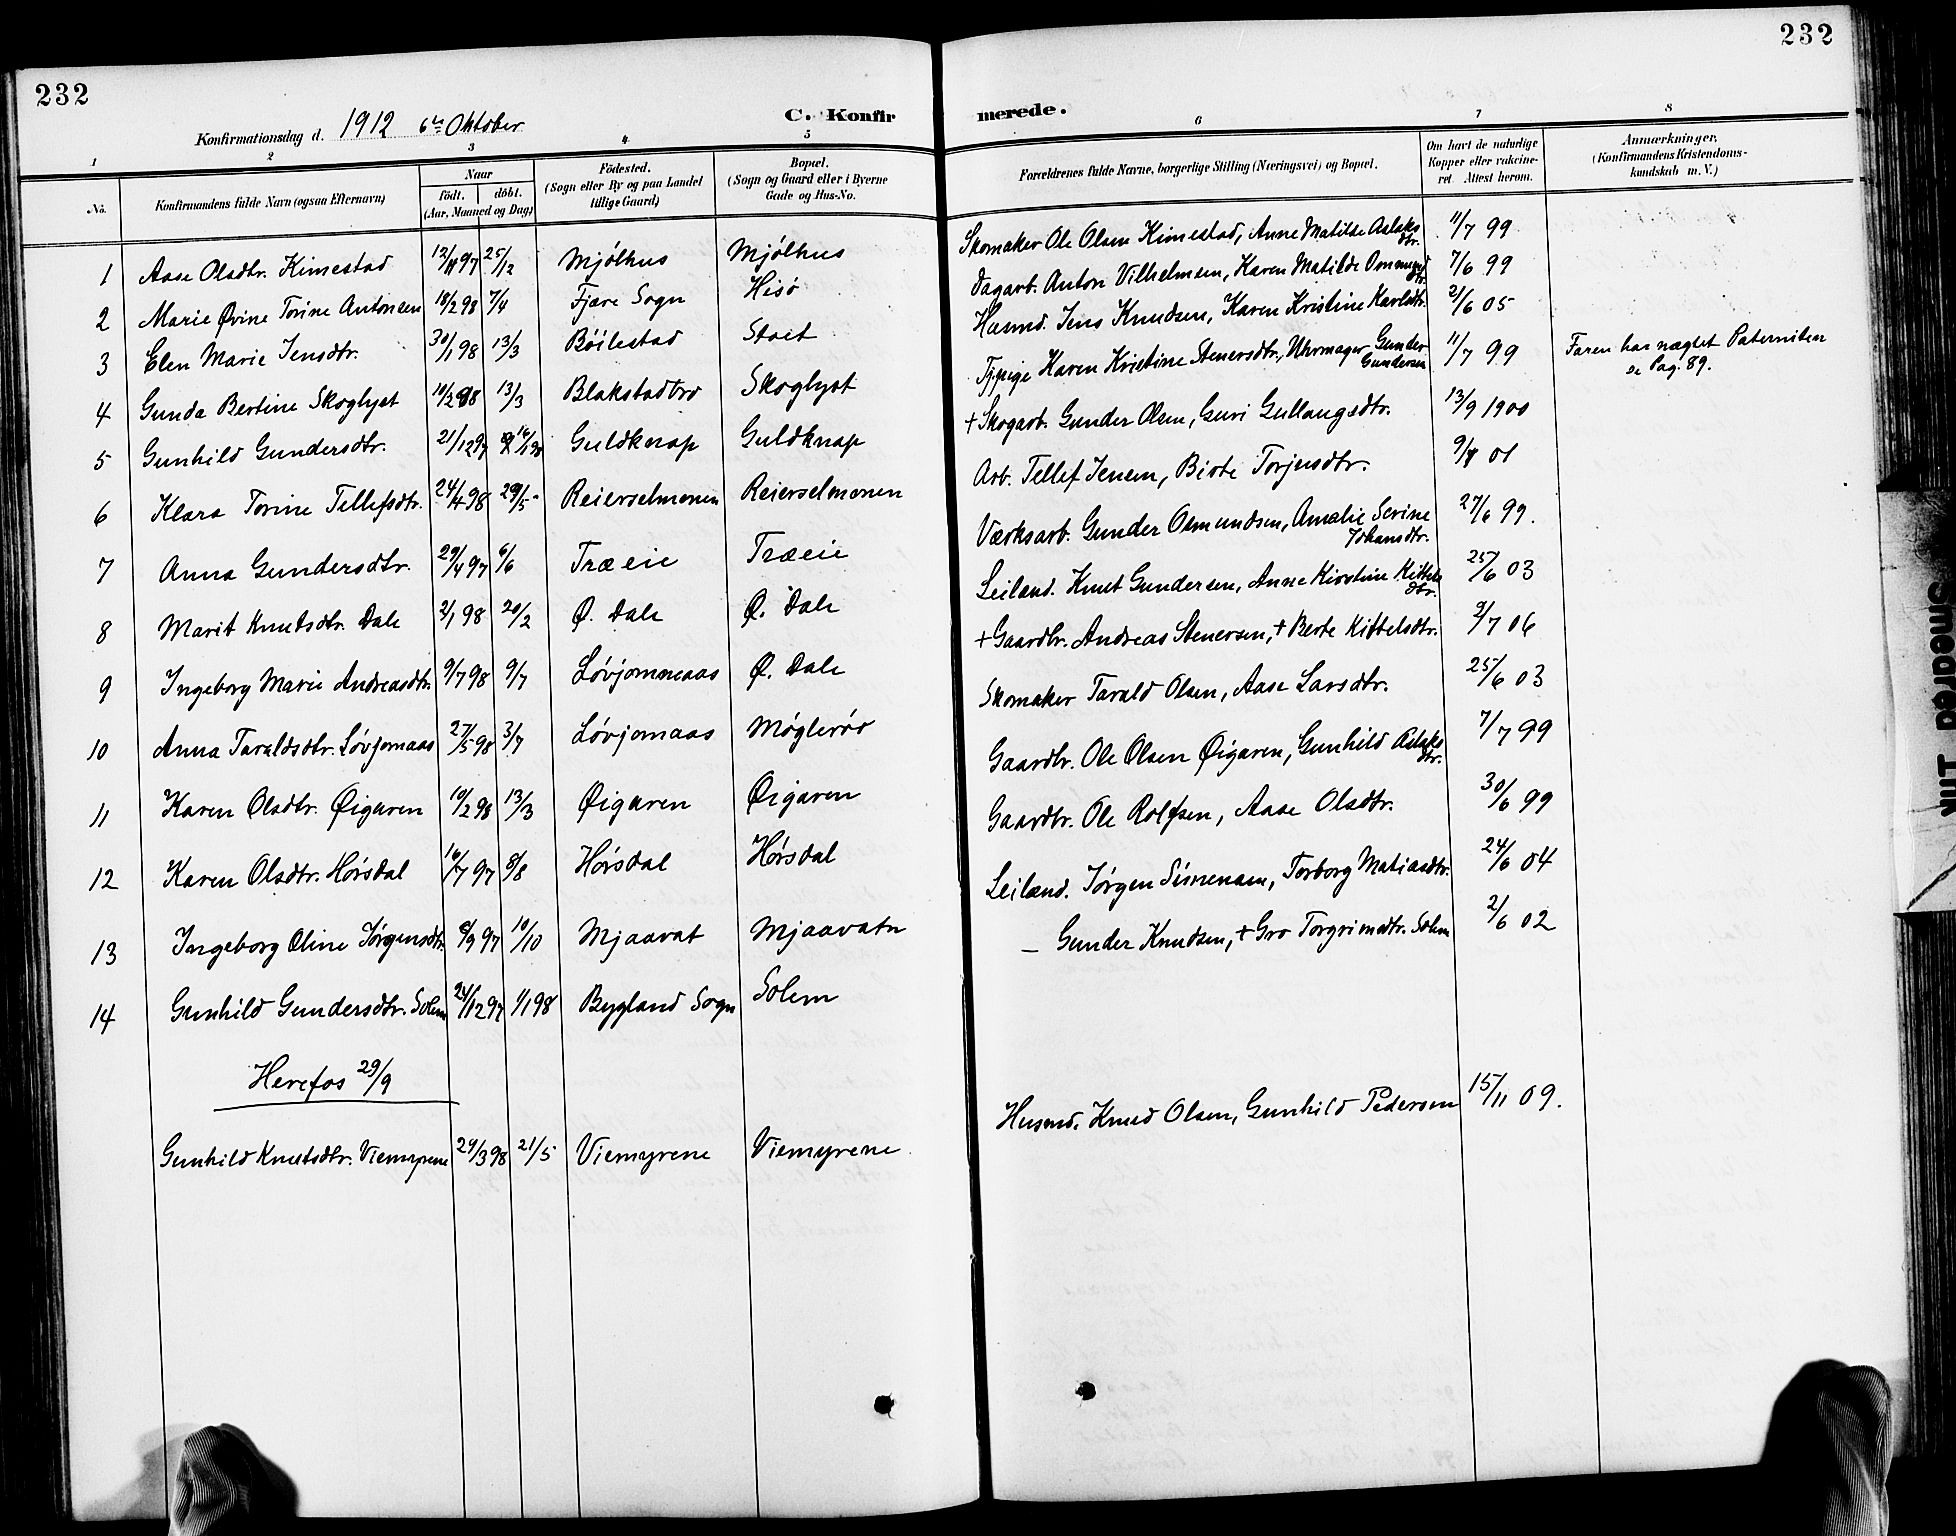 232
232
Konfirmationsdag d. 1912 6te Oktober
C. Konfirmerede.
1 2 3 4 5 6 7 8
No.
Konfirmandens fulde Navn (ogsaa Efternavn)
Naar
födt. döbt.
(Aar, Maaned og Dag)
Födested.
(Sogn eller By og paa Landet
tillige Gaard)
Bopæl.
(Sogn og Gaard eller i Byerne
Gade og Hus-No.
Forældrenes fulde Navne, borgerlige Stilling (Næringsvei) og Bopæl.
Om havt de naturlige
Kopper eller vakcine-
ret. Attest herom.
Anmærkninger,
(Konfirmandens Kristendoms-
kundskab m. V.)
1 Aase Olsdtr. Kimestad 12/11 97 25/12 Mjølhus Mjølhus Skomaker Ole Olsen Kimestad, Anne Matilde Aslaksdtr. 11/7 99
2 Marie Øvine Torine Antonsen 18/2 98 7/4 Fjære Sogn Hisø Dagarb. Anton Vilhelmsen, Karen Matilde Ommundsdtr. 7/6 99
3 Elen Marie Jensdtr. 30/1 98 13/3 Bøilestad Stoet Husmd. Jens Knudsen, Karen Kristine Karlsdtr. 21/6 05
4 Gunda Bertine Skoglyst 10/2 98 13/3 Blakstadbro Skoglyst Tjpige Karen Kristine Stenersdtr., Uhrmager Gunder Gundersen 11/7 99 Faren har nægtet Paterniteten
se Pag. 89.
5 Gunhild Gundersdtr. 21/12 97 Guldknap Guldknap + Skogarb. Gunder Olsen, Guri Gullaugsdtr. 13/9 1900
6 Klara Torine Tellefsdtr. 24/4 98 29/5 Reierselmonen Reierselmonen Arb. Tellef Jensen, Birte Torjusdtr. 9/7 01
7 Anna Gundersdtr. 29/4 97 6/6 Træeie Træeie Værksarb. Gunder Osmundsen, Amalie Serine Johansdtr. 27/6 99.
8 Marit Knutsdtr. Dale 2/1 98 20/2 Ø. Dale Ø. Dale Leilænd. Knut Gundersen, Anne Kirstine Kittelsdtr. 25/6 03
9 Ingeborg Marie Andreasdtr. 9/7 98 9/7 Løvjomneaas Ø. Dale + Gaardbr. Andreas Stenersen, + Berte Kittelsdtr. 2/7 06
10 Anna Taraldsdtr. Løvjomaas 27/5 98 3/7 Løvjomaas Møglerøs Skomaker Tarald Olsen, Aase Larsdtr. 25/6 03
11 Karen Olsdtr. Øigaren 10/2 98 13/3 Øigaren Øigaren Gaardbr. Ole Olsen Øigaren, Gunhild Aslaksdtr. 7/7 99
12 Karen Olsdtr. Hørsdal 16/7 97 8/8 Hørsdal Hørsdal Gaardbr. Ole Rolfsen, Aase Olsdtr. 30/6 99
13 Ingeborg Oline Jørgensdtr. 8/9 97 10/10 Mjaavat Mjaavatn Leilænd. Jørgen Simensen, Torborg Matiasdtr. 24/6 04
14 Gunhild Gundersdtr. Solem 24/12 97 1/1 98 Bygland Sogn Solem – Gunder Knudsen, + Gro Torgrimsdtr. Solem 2/6 02
Herefos 29/9
Gunhild Knutsdtr. Viemyrene 29/3 98 21/5 Viemyrene Viemyrene Husmd. Knud Olsen, Gunhild Pedersen 15/11 09.